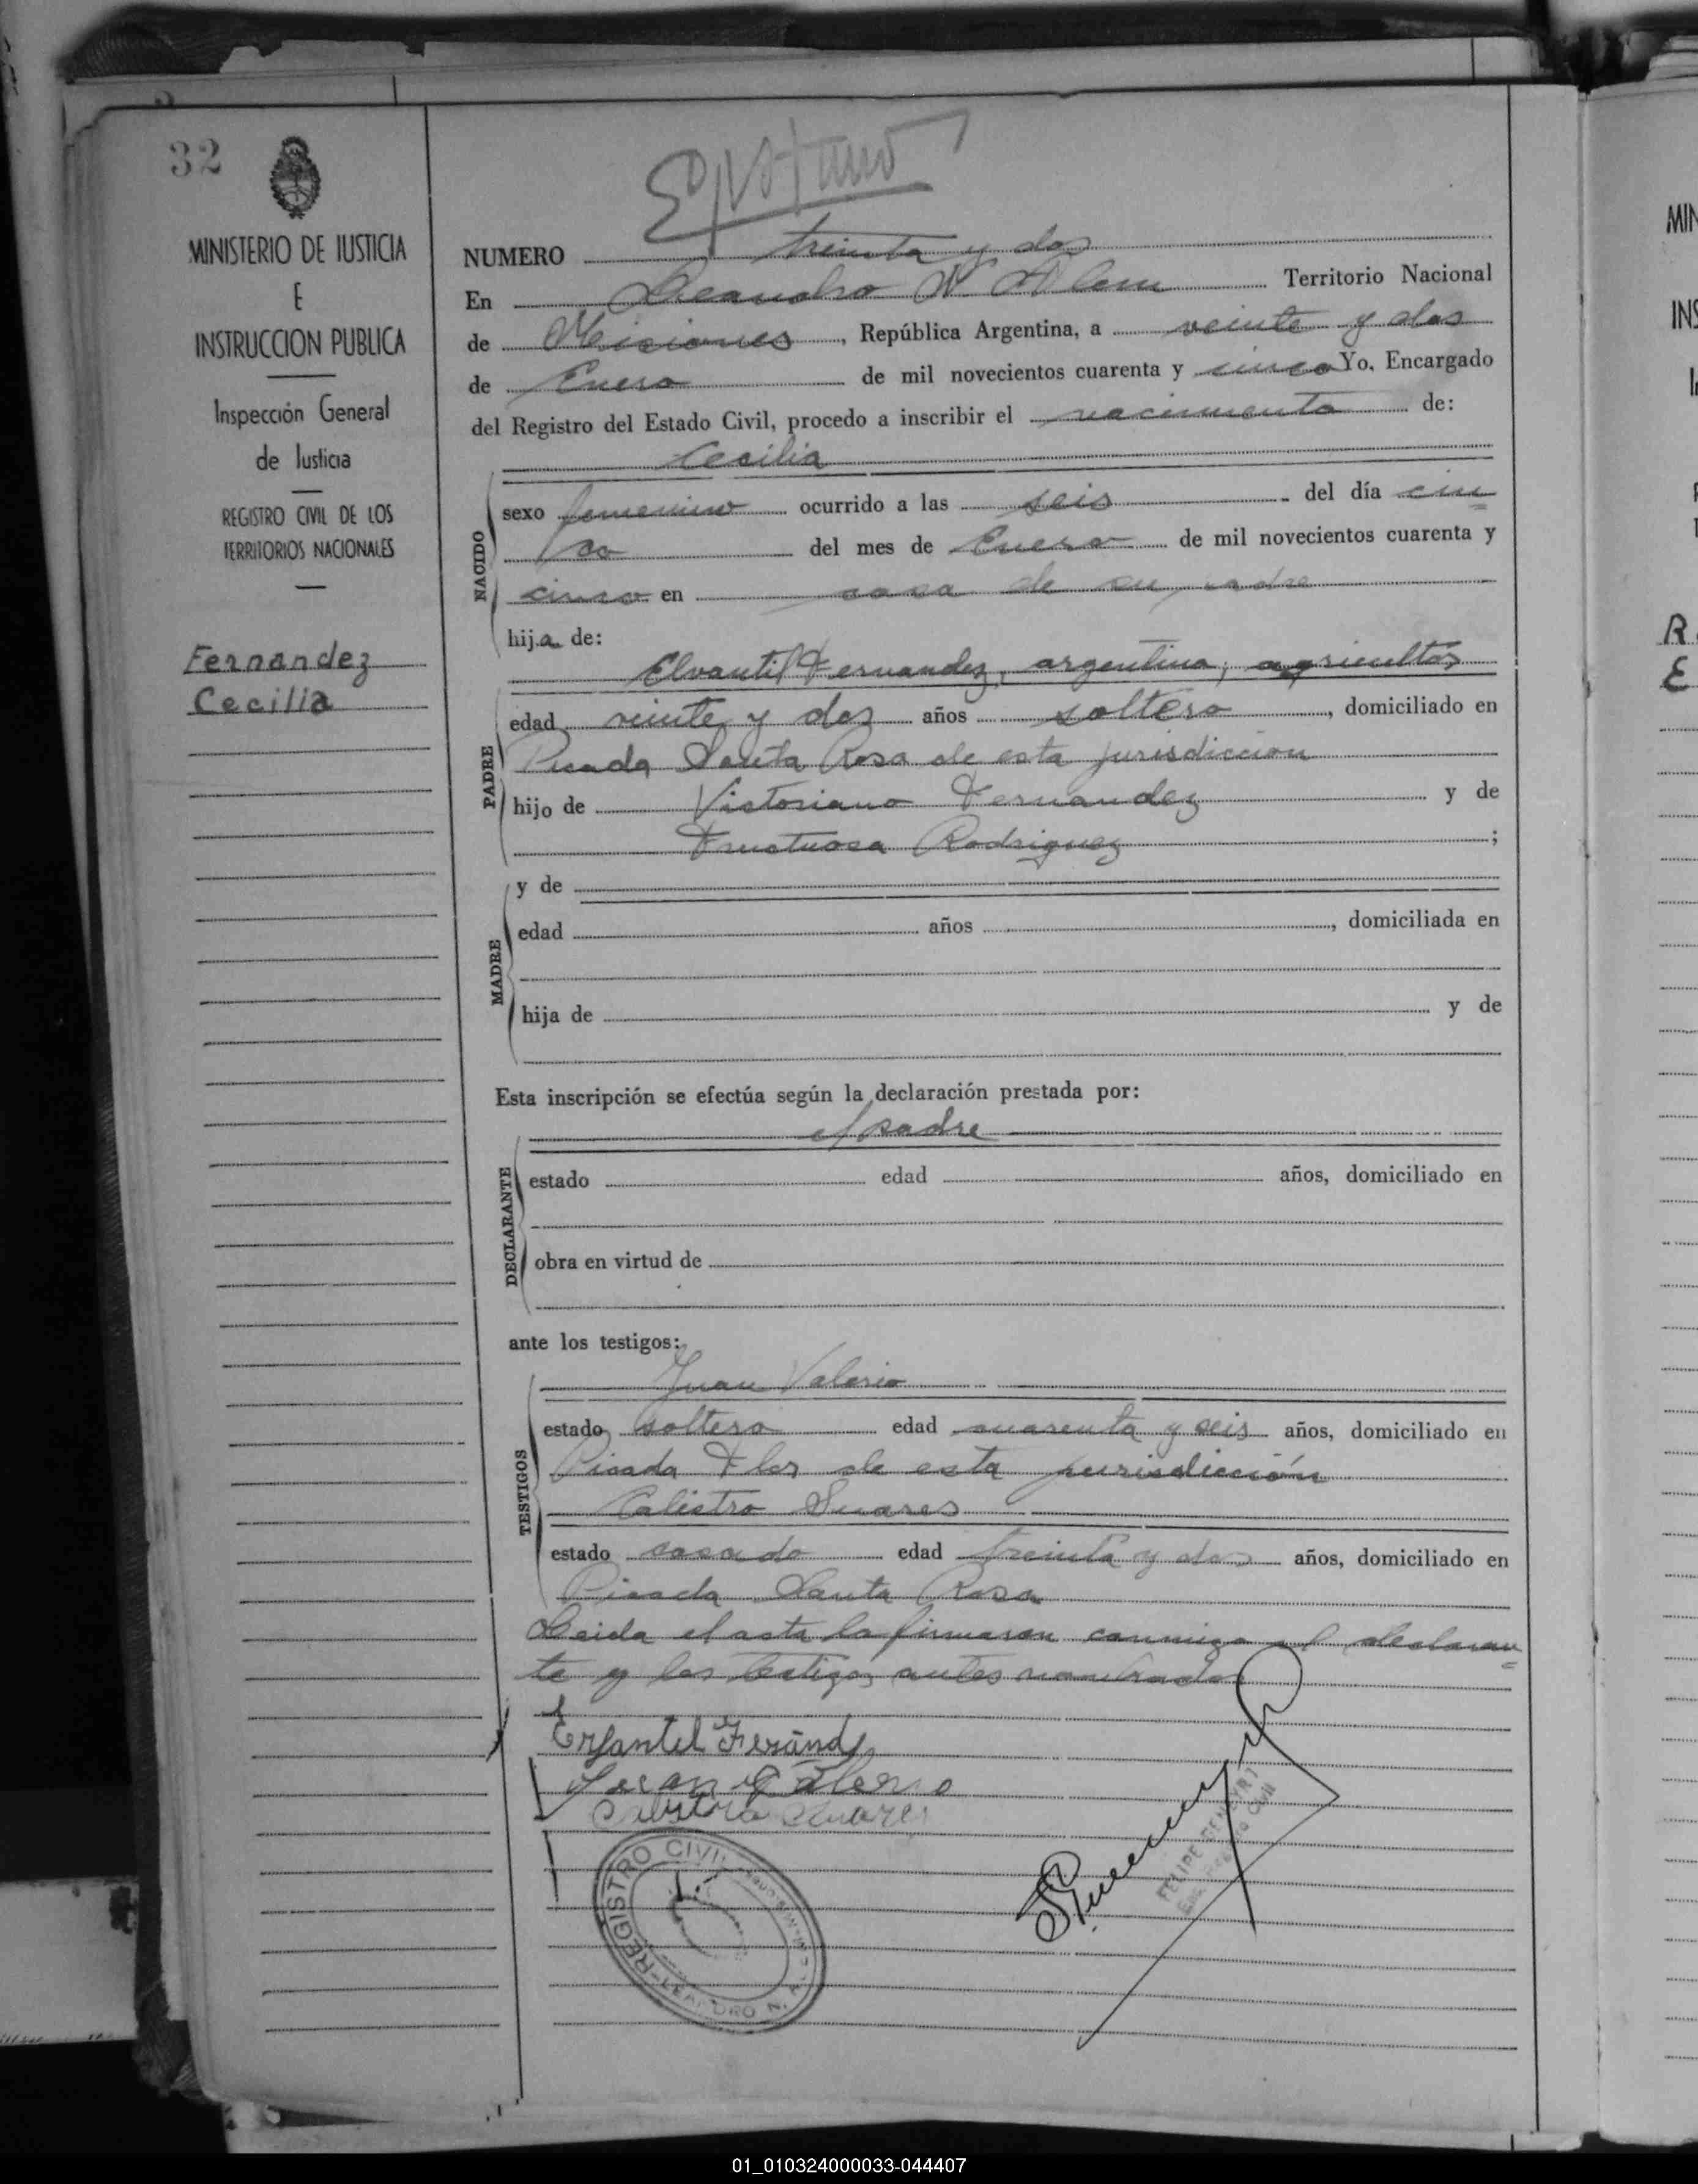 32
MINISTERIO DE JUSTICIA
E
INSTRUCCION PUBLICA
Inspección General
de Justicia
REGISTRO CIVIL DE LOS
TERRITORIOS NACIONALES
Fernandez
Cecilia
NUMERO treinta y dos
En Leandro N. Alem Territorio Nacional
de Misiones, República Argentina, a veinte y dos
de Enero de mil novecientos cuarenta y cinco Yo, Encargado
del Registro del Estado Civil, procedo a inscribir el nacimiento de:
Cecilia
NACIDO
sexo femenino ocurrido a las seis del día cin
co del mes de Enero de mil novecientos cuarenta y
cinco en casa de su padre
hija de:
PADRE
Elvantil Fernandez, argentino, agricultor
edad veinte y dos años soltero, domiciliado en
Picada Santa Rosa de esta jurisdiccion
hijo de Victoriano Fernandez y de
Fructuosa Rodriguez;
MADRE
y de
edad años, domiciliada en
hija de y de
Esta inscripción se efectúa según la declaración prestada por:
DECLARANTE
el padre
estado edad años, domiciliado en
obra en virtud de
ante los testigos:
TESTIGOS
Juan Valerio
estado soltero edad cuarenta y seis años, domiciliado en
Picada Flor de esta jurisdicción
Calistro Suares
estado casado edad treinta y dos años, domiciliado en
Picada Santa Rosa
Leida el acta la firmaron conmigo el declaran
te y los testigos antes nombrados
REGISTRO CIVIL
LEANDRO N.
FELIPE
01_010324000033-044407